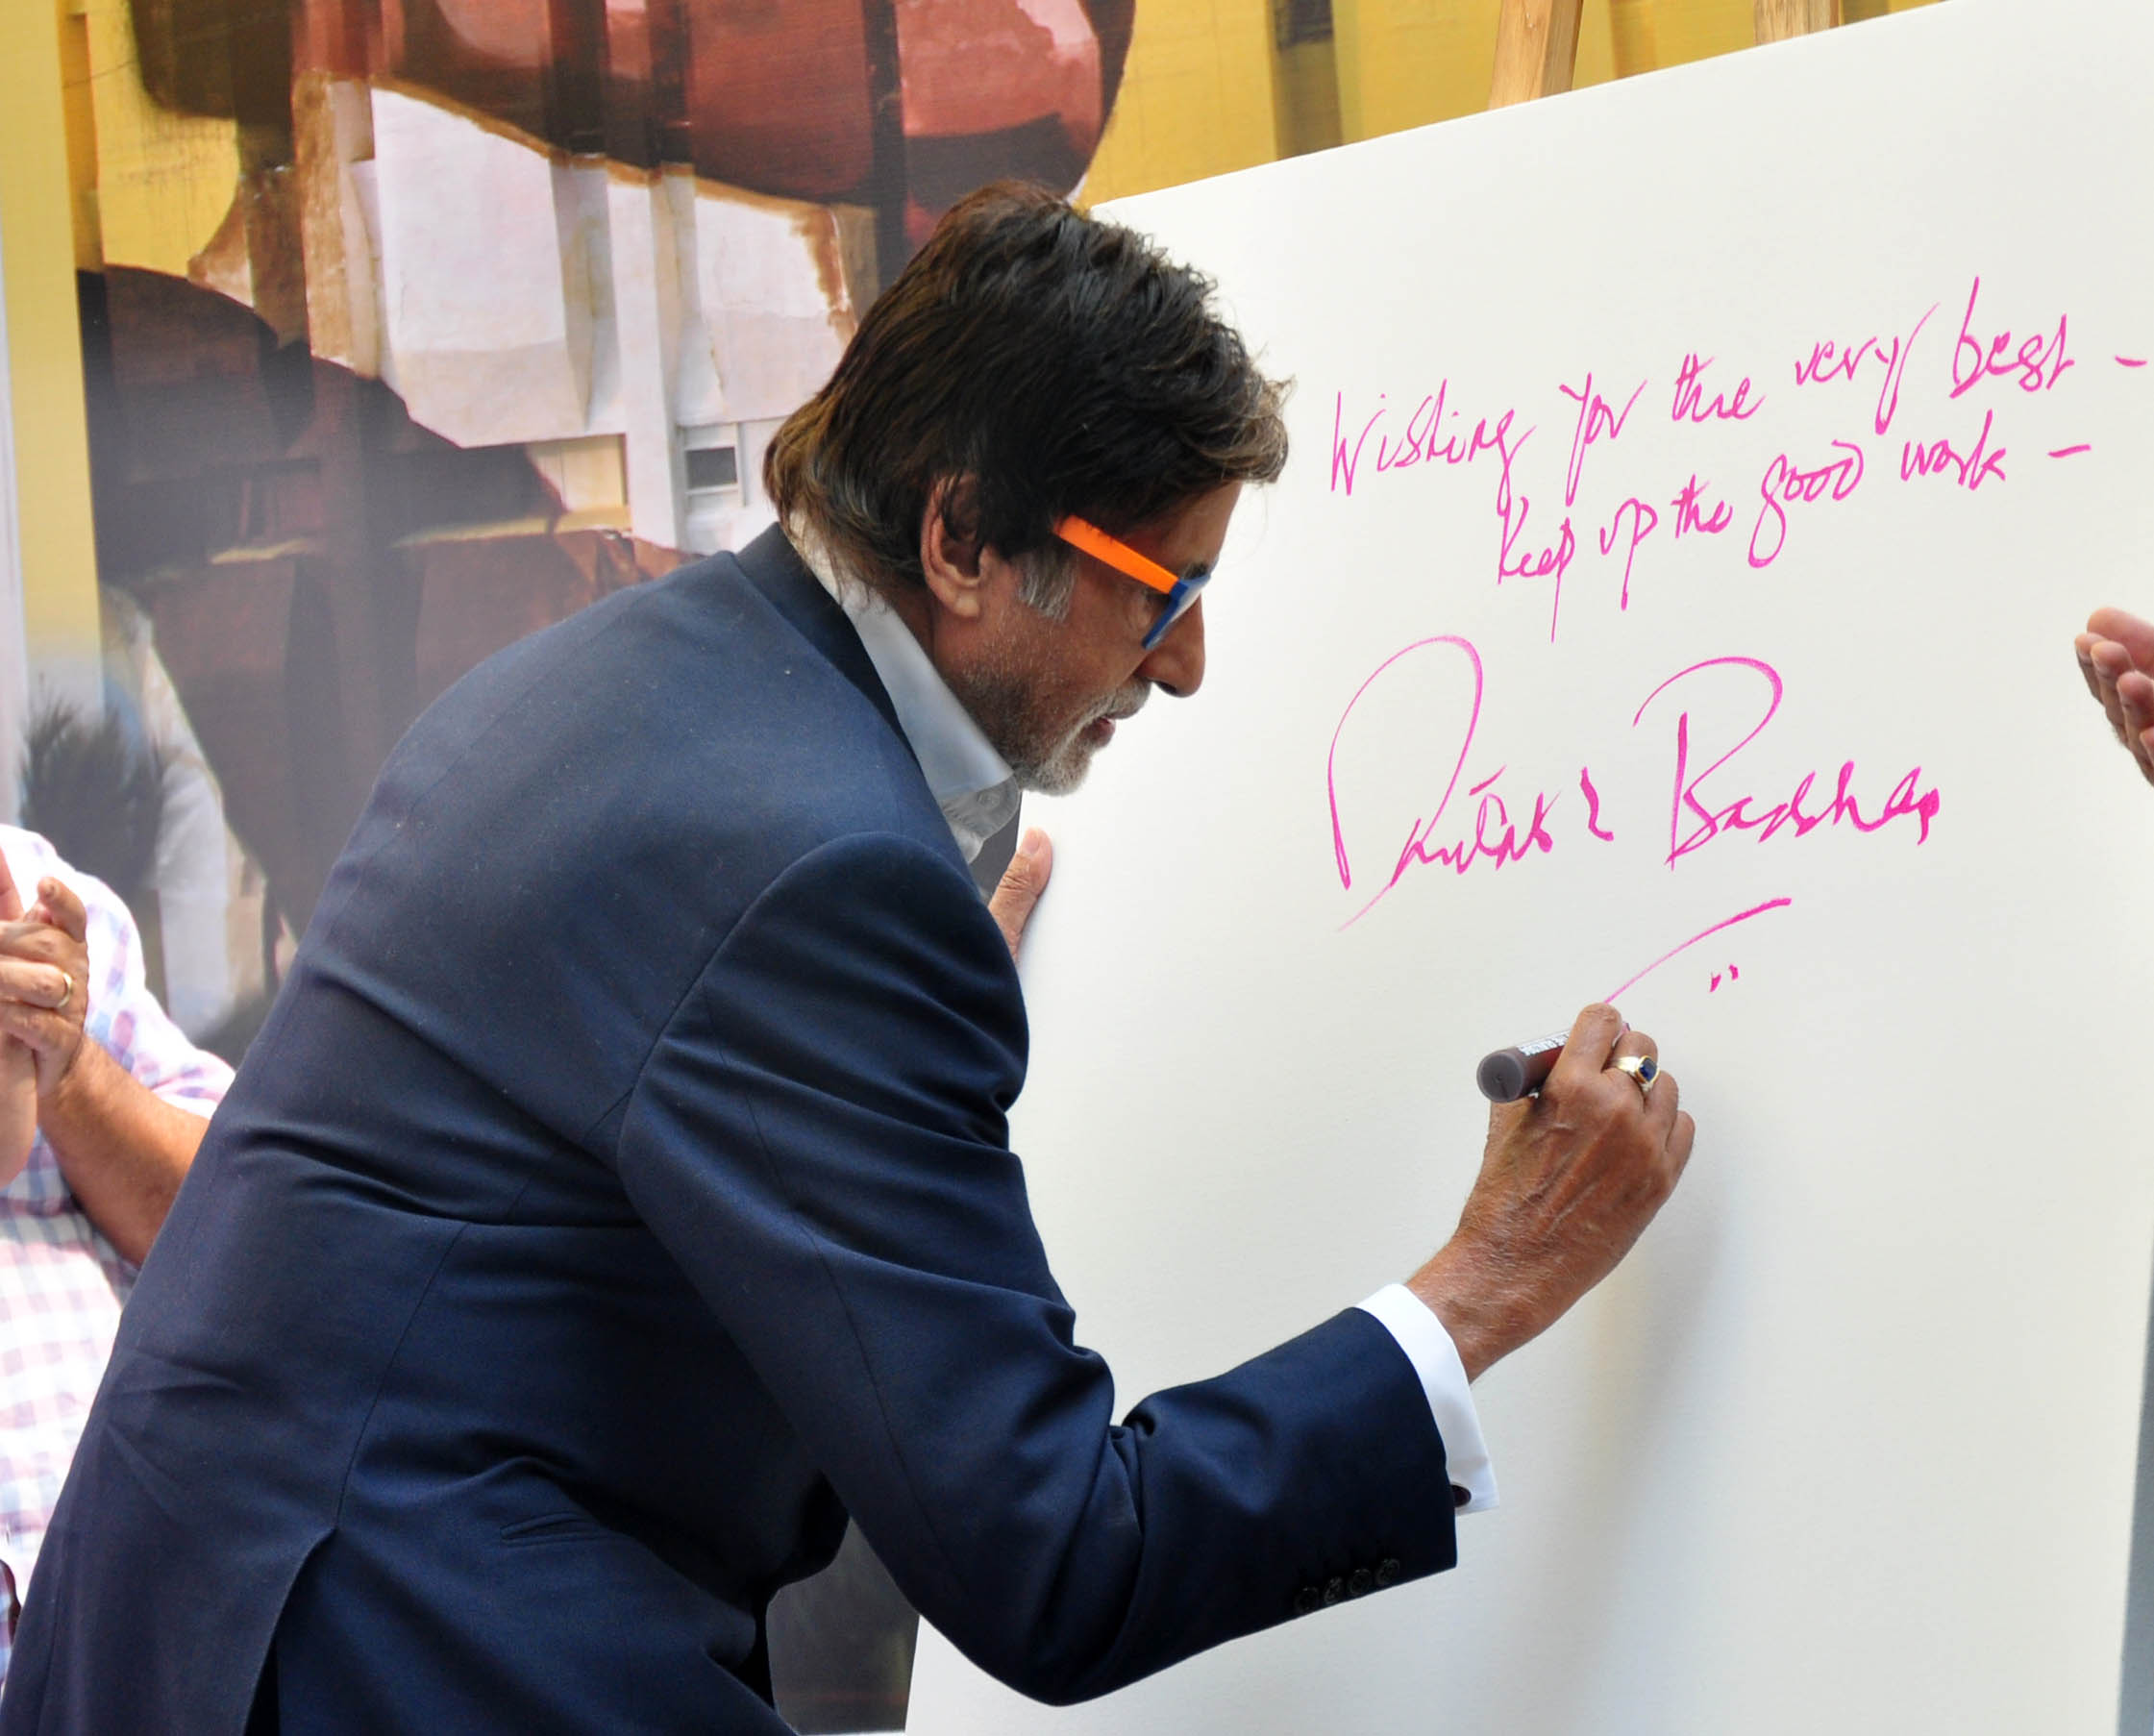 Wishing you the very best -
Keep up the good work -